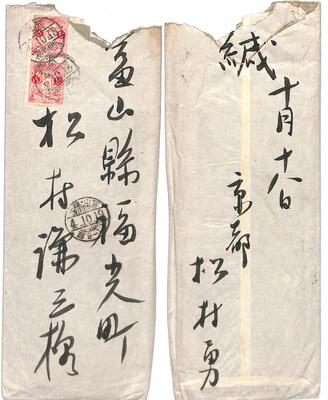 富山縣福光町
松村謙三様
4.10.19
緘
十月十八日
京都
松村勇